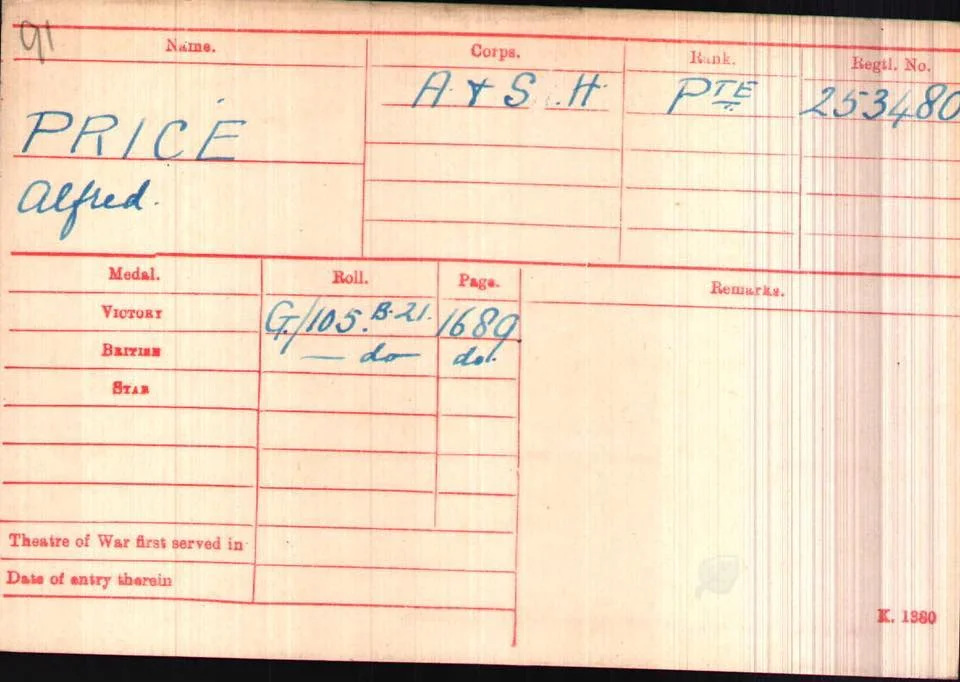 91
Name. Corps. Rank. Regtl. No.
A & S. H. PTE 253480
PRICE
Alfred.
Medal. Roll. Page. Remarks.
VICTORY G/105.B.21. 1689
BRITISH — do — do.
STAR
Theatre of War first served in
Date of entry therein
K. 1380